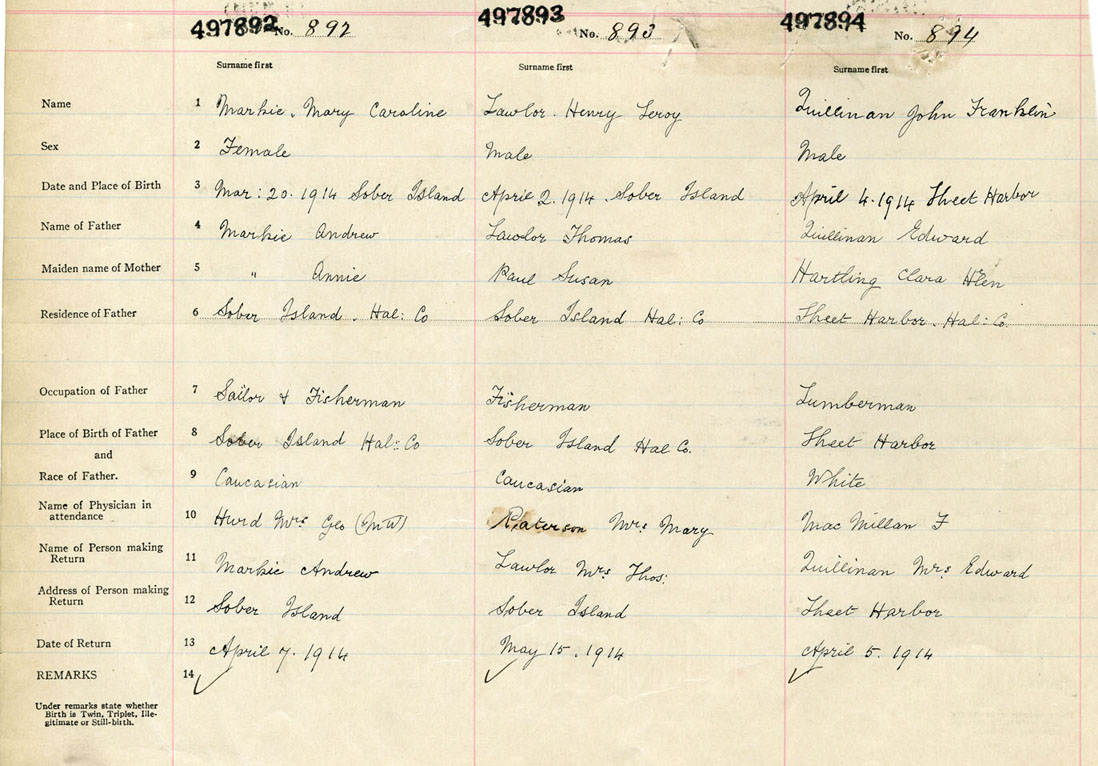 497892 No. 892 497893 No. 893 497894 No. 894
Surname first Surname first Surname first
Name 1 Markie, Mary Caroline Lawlor. Henry Leroy Quillinan John Franklin
Sex 2 Female Male Male
Date and Place of Birth 3 Mar: 20. 1914 Sober Island April 2. 1914. Sober Island April 4. 1914 Sheet Harbor
Name of Father 4 Markie Andrew Lawlor Thomas Quillinan Edward
Maiden name of Mother 5 " Annie Paul Susan Hartling Clara Hlen
Residence of Father 6 Sober Island. Hal: Co Sober Island Hal: Co Sheet Harbor. Hal: Co.
Occupation of Father 7 Sailor & Fisherman Fisherman Lumberman
Place of Birth of Father 8 Sober Island Hal: Co Sober Island Hal Co. Sheet Harbor
and
Race of Father. 9 Caucasian Caucasian White
Name of Physician in
attendance 10 Hurd Mrs Geo (MW) Paterson Mrs Mary Mac Millan F
Name of Person making
Return 11 Markie Andrew Lawlor Mrs Thos: Quillinan Mrs Edward
Address of Person making
Return 12 Sober Island Sober Island Sheet Harbor
Date of Return 13 April 7. 1914 May 15. 1914 April 5. 1914
REMARKS 14 ✓ ✓ ✓
Under remarks state whether
Birth is Twin, Triplet, Ille-
gitimate or Still-birth.